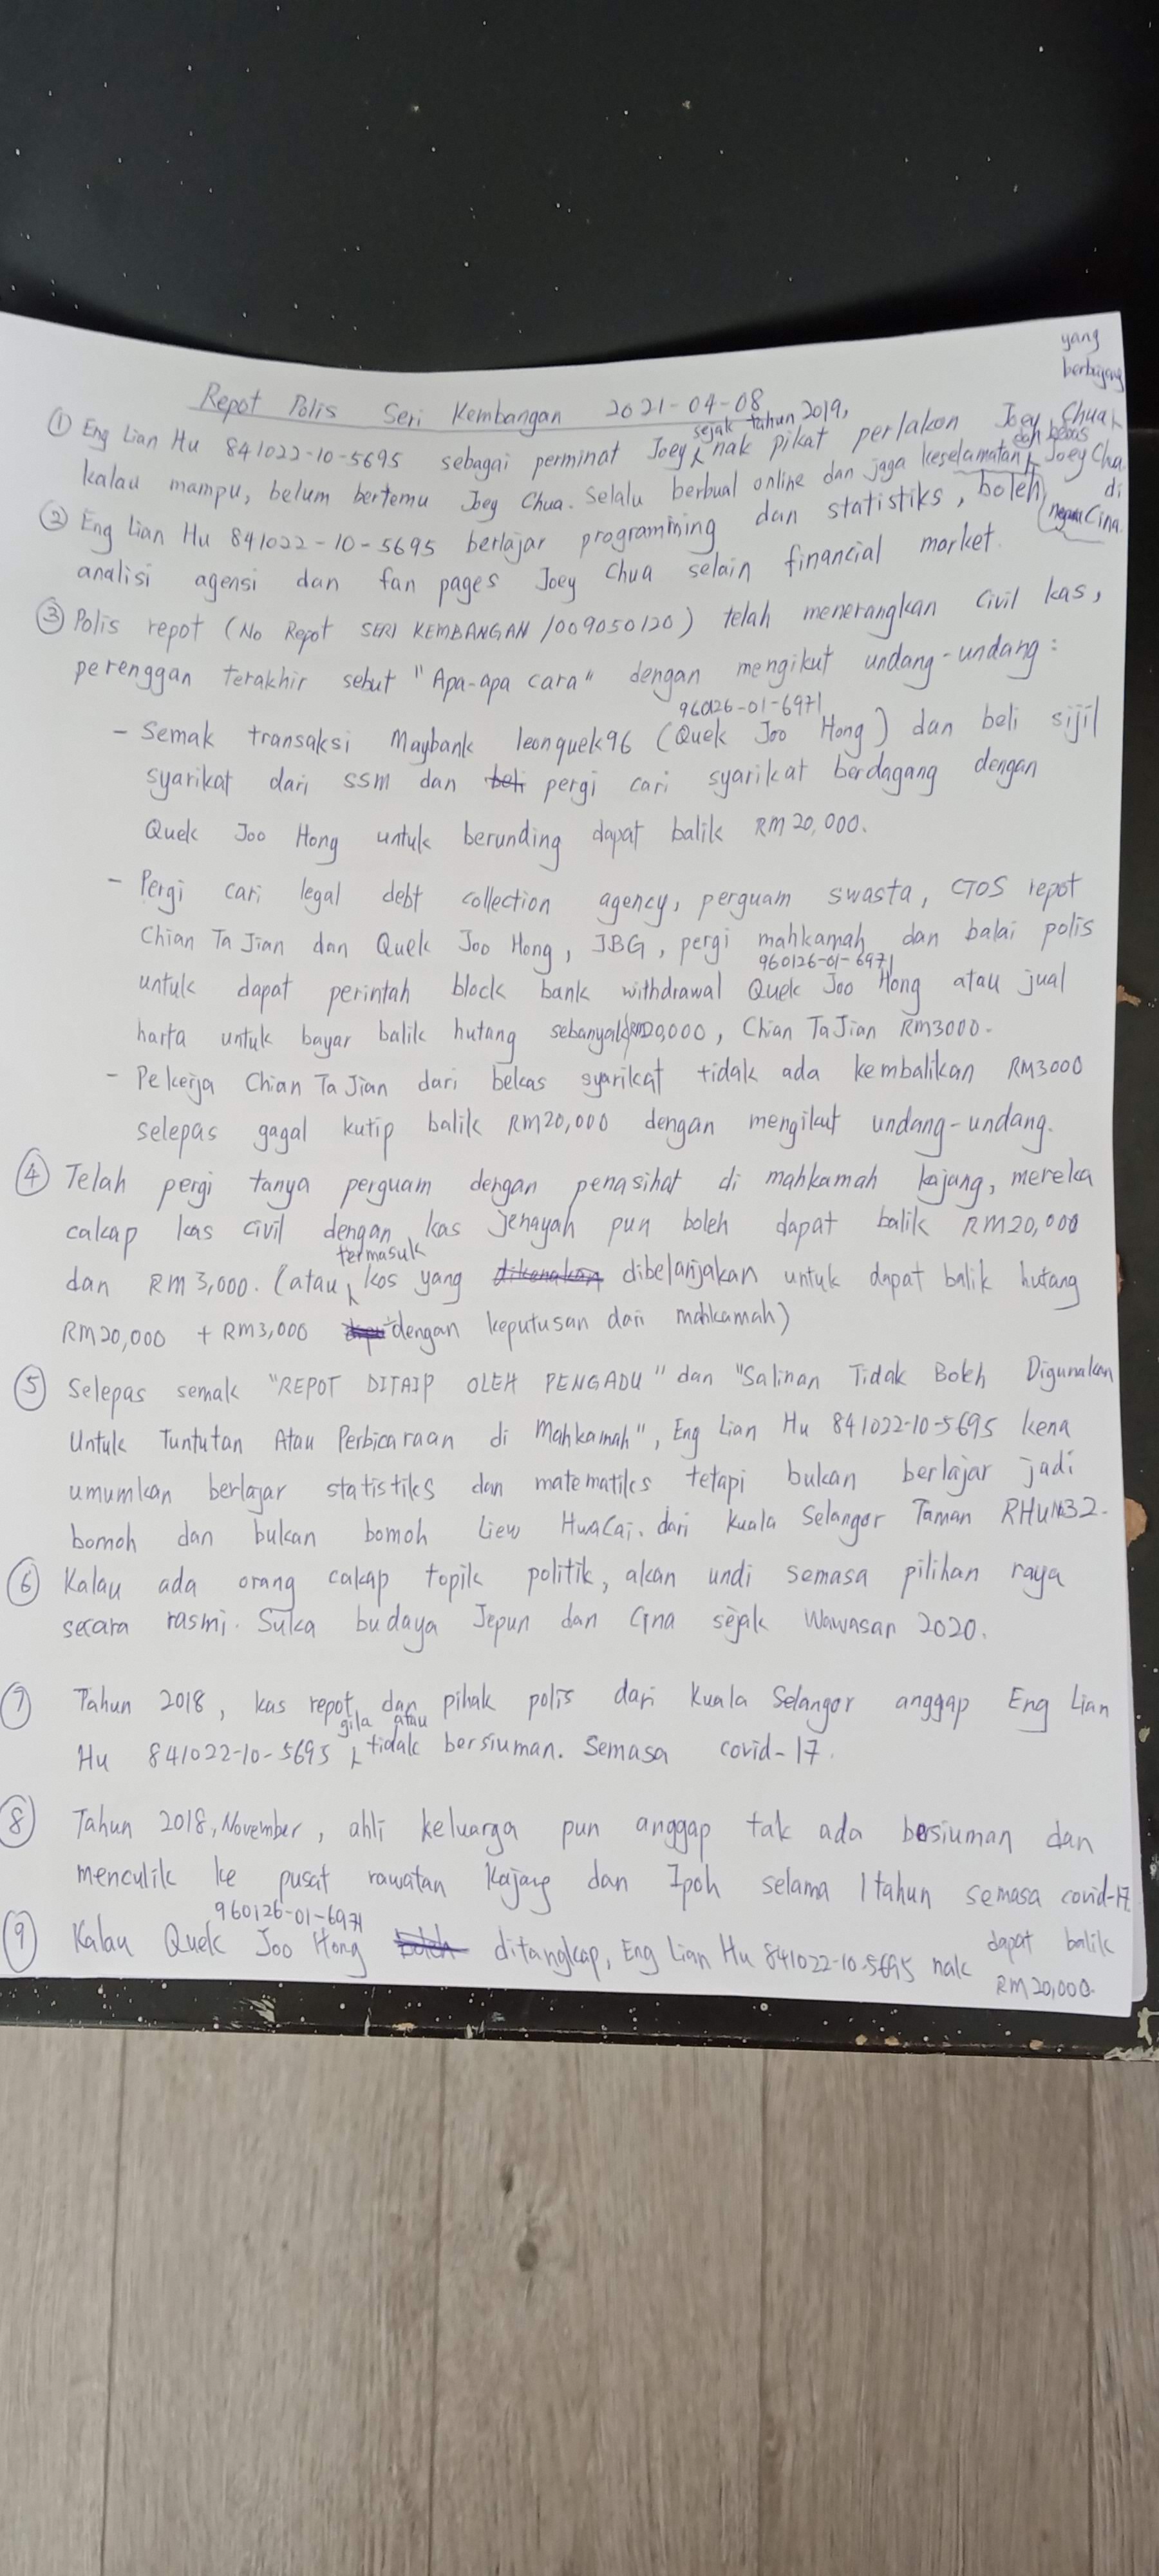 Repot Polis Seri Kembangan 2021-04-08
yang berbujang
① Eng Lian Hu 841022-10-5695 sebagai perminat Joey sejak tahun 2019, nak pikat perlakon Joey Chua
kalau mampu, belum bertemu Joey Chua. Selalu berbual online dan jaga keselamatan dan bebas Joey Chua di negara Cina.
② Eng Lian Hu 841022-10-5695 berlajar programming dan statistiks, boleh
analisi agensi dan fan pages Joey Chua selain financial market.
③ Polis repot (No Repot SERI KEMBANGAN /009050/20) telah menerangkan civil kas,
perenggan terakhir sebut "Apa-apa cara" dengan mengikut undang-undang:
960126-01-6971
- Semak transaksi Maybank leonquek96 (Quek Joo Hong) dan beli sijil
syarikat dari SSM dan beli pergi cari syarikat berdagang dengan
Quek Joo Hong untuk berunding dapat balik RM 20,000.
- Pergi cari legal debt collection agency, perguam swasta, CTOS repot
Chian Ta Jian dan Quek Joo Hong, JBG, pergi mahkamah dan balai polis
960126-01-6971
untuk dapat perintah block bank withdrawal Quek Joo Hong atau jual
harta untuk bayar balik hutang sebanyak RM20,000, Chian Ta Jian RM3000.
- Pekerja Chian Ta Jian dari bekas syarikat tidak ada kembalikan RM3000
selepas gagal kutip balik RM20,000 dengan mengikut undang-undang.
④ Telah pergi tanya perguam dengan penasihat di mahkamah kajang, mereka
cakap kas civil dengan kas jenayah pun boleh dapat balik RM20,000
dan RM 3,000. (atau termasuk kos yang dikenakan dibelanjakan untuk dapat balik hutang
RM20,000 + RM3,000 dengan keputusan dari mahkamah)
⑤ Selepas semak "REPOT DITAIP OLEH PENGADU" dan "Salinan Tidak Boleh Digunakan
Untuk Tuntutan Atau Perbicaraan di Mahkamah", Eng Lian Hu 841022-10-5695 kena
umumkan berlajar statistiks dan matematiks tetapi bukan berlajar jadi
bomoh dan bukan bomoh Liew HuaCai. dari Kuala Selangor Taman
⑥ Kalau ada orang cakap topik politik, akan undi semasa pilihan raya
secara rasmi. Suka budaya Jepun dan Cina sejak Wawasan 2020.
⑦ Tahun 2018, kas repot dan pihak polis dari Kuala Selangor anggap Eng Lian
Hu 841022-10-5695 gila atau tidak bersiuman. Semasa covid-17.
⑧ Tahun 2018, November, ahli keluarga pun anggap tak ada bersiuman dan
menculik ke pusat rawatan Kajang dan Ipoh selama 1 tahun semasa covid-17
960126-01-6971
⑨ Kalau Quek Joo Hong boleh ditangkap, Eng Lian Hu 841022-10-5695 nak dapat balik
RM 20,000.